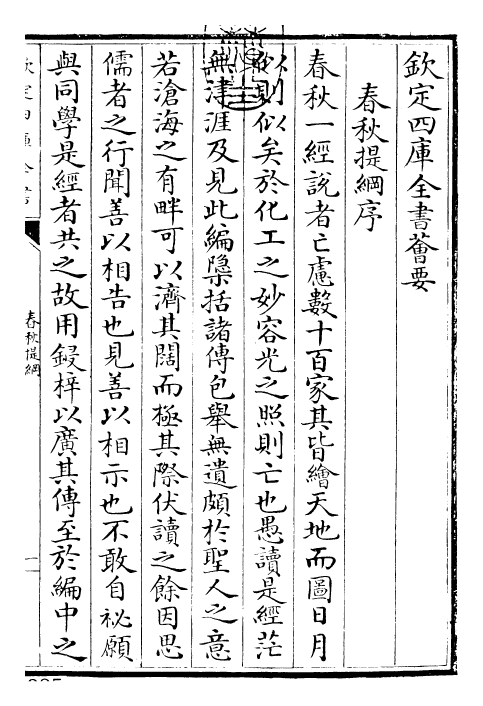 欽定四庫全書薈要
春秋提綱序
春秋一經說者亡慮數十百家其皆繪天地而圖日月
似則似矣於化工之妙容光之照則亡也愚讀是經茫
無津涯及見此編檃括諸傳包舉無遺頗於聖人之意
若滄海之有畔可以濟其闊而極其際伏讀之餘因思
儒者之行聞善以相告也見善以相示也不敢自祕願
與同學是經者共之故用鋟梓以廣其傳至於編中之
春秋提綱
一